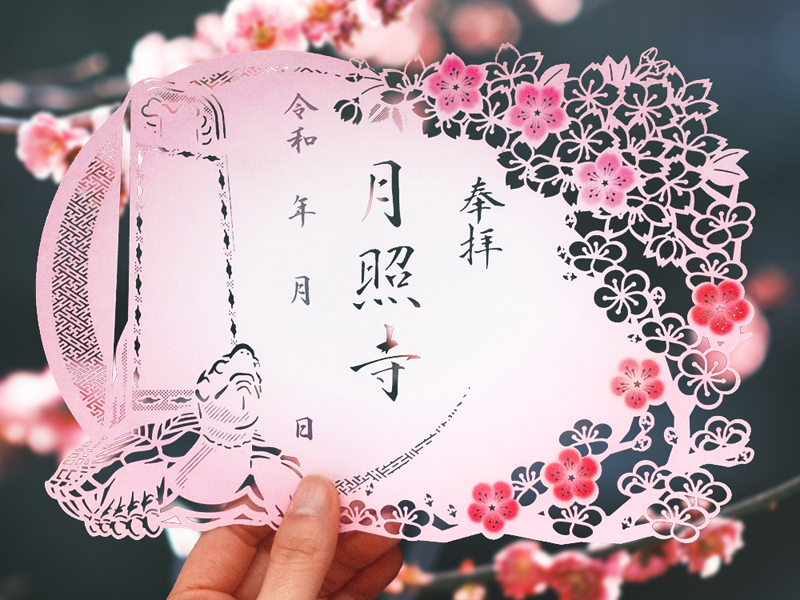 奉拝
月照寺
令和 年 月 日